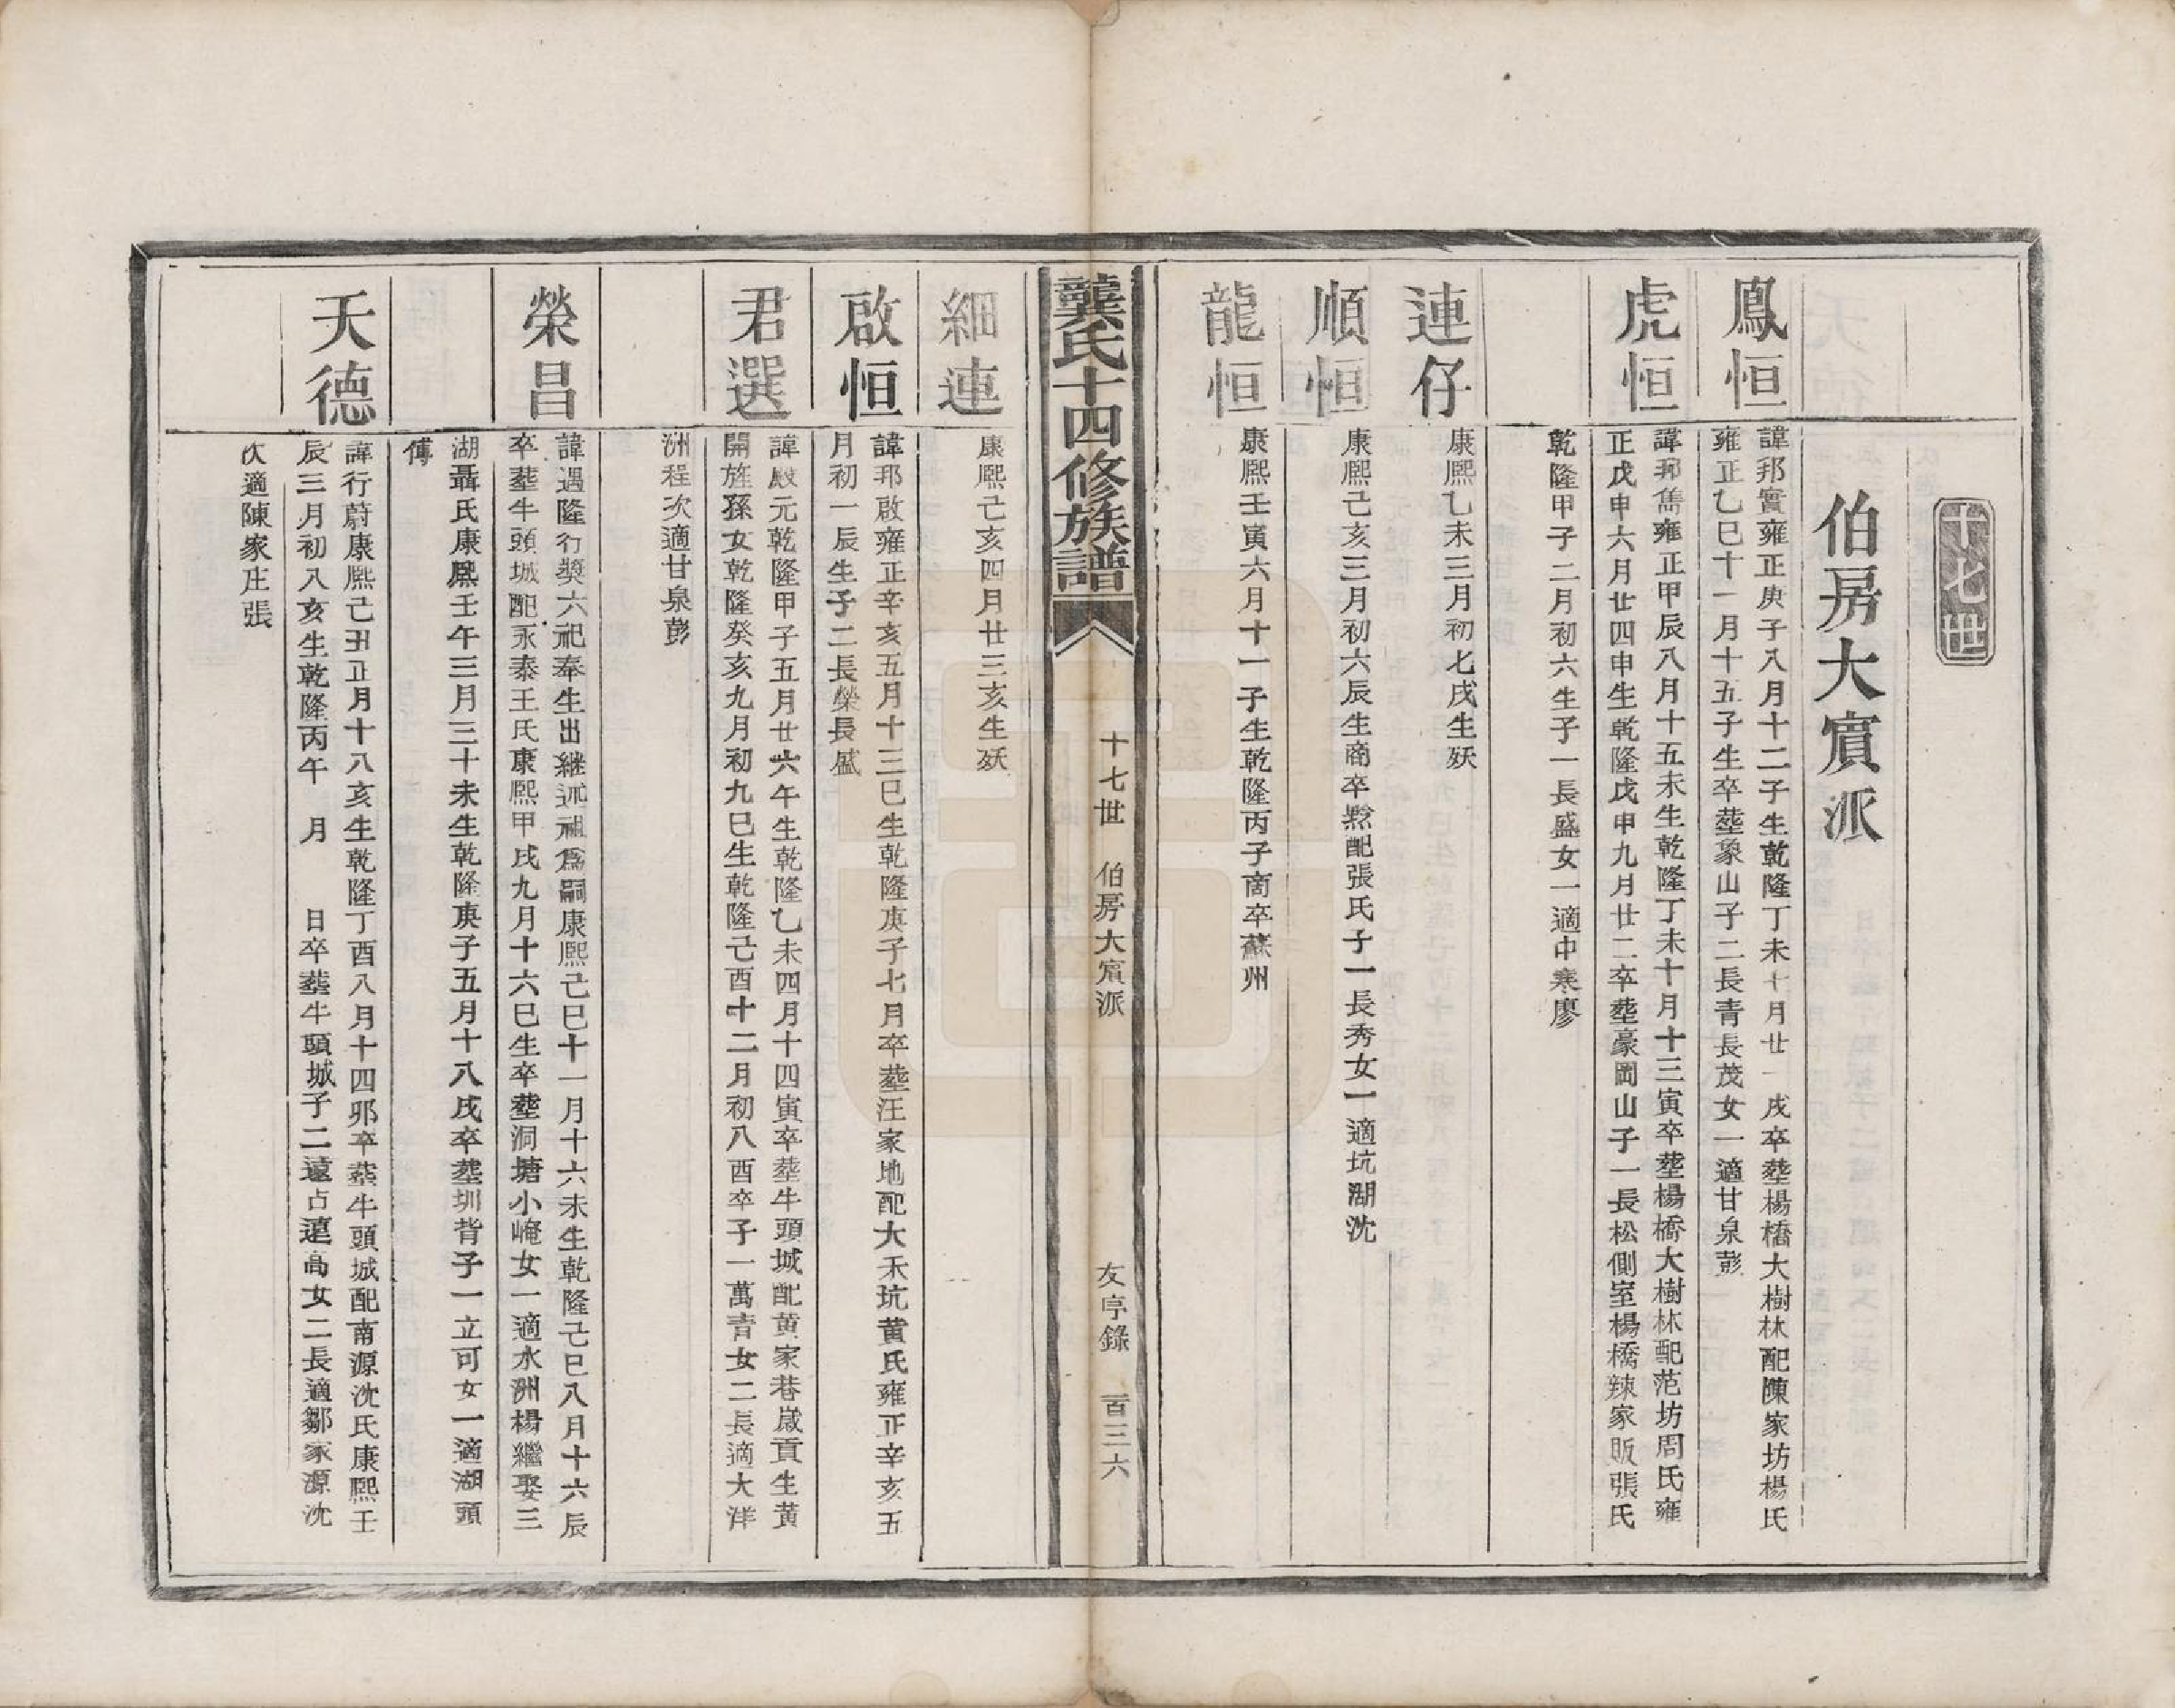 十七世
伯房大賓派
鳳恒
諱邦實雍正庚子八月十二子生乾隆丁未七月廿一戌卒塟楊橋大樹林配陳家坊楊氏
雍正乙巳十一月十五子生卒塟象山子二長青長茂女一適甘泉彭
虎恒
諱邦儁雍正甲辰八月十五未生乾隆丁未十月十三寅卒塟楊橋大樹林配范坊周氏雍
正戊申六月廿四申生乾隆戊申九月廿二卒塟豪岡山子一長松側室楊橋辣家販張氏
乾隆甲子二月初六生子一長盛女一適中寒廖
連仔
康熙乙未三月初七戌生殀
順恒
康熙己亥三月初六辰生商卒黟配張氏子一長秀女一適坑湖沈
龍恒
康熙壬寅六月十一子生乾隆丙子商卒蘇州
龔氏十四修族譜
十七世 伯房大賓派
友亭錄 百三六
細連
康熙己亥四月廿三亥生殀
啟恒
諱邦啟雍正辛亥五月十三巳生乾隆庚子七月卒塟汪家地配大禾坑黄氏雍正辛亥五
月初一辰生子二長榮長盛
君選
諱殿元乾隆甲子五月廿六午生乾隆乙未四月十四寅卒塟牛頭城配黄家巷嵗貢生黄
開旌孫女乾隆癸亥九月初九巳生乾隆己酉十二月初八酉卒子一萬青女二長適大洋
洲程次適甘泉彭
榮昌
諱遇隆行獎六祀奉生出繼述補爲嗣康熙己巳十一月十六未生乾隆己巳八月十六辰
卒塟牛頭城配永泰王氏康熙甲戌九月十六巳生卒塟洞塘小崦女一適水洲楊繼娶三
湖聶氏康熙壬午三月三十未生乾隆庚子五月十八戌卒塟圳背子一立可女一適湖頭
傅
天德
諱行蔚康熙己丑正月十八亥生乾隆丁酉八月十四夘卒塟牛頭城配南源沈氏康熙壬
辰三月初八亥生乾隆丙午 月 日卒塟牛頭城子二遠占遠高女二長適鄒家源沈
次適陳家庄張